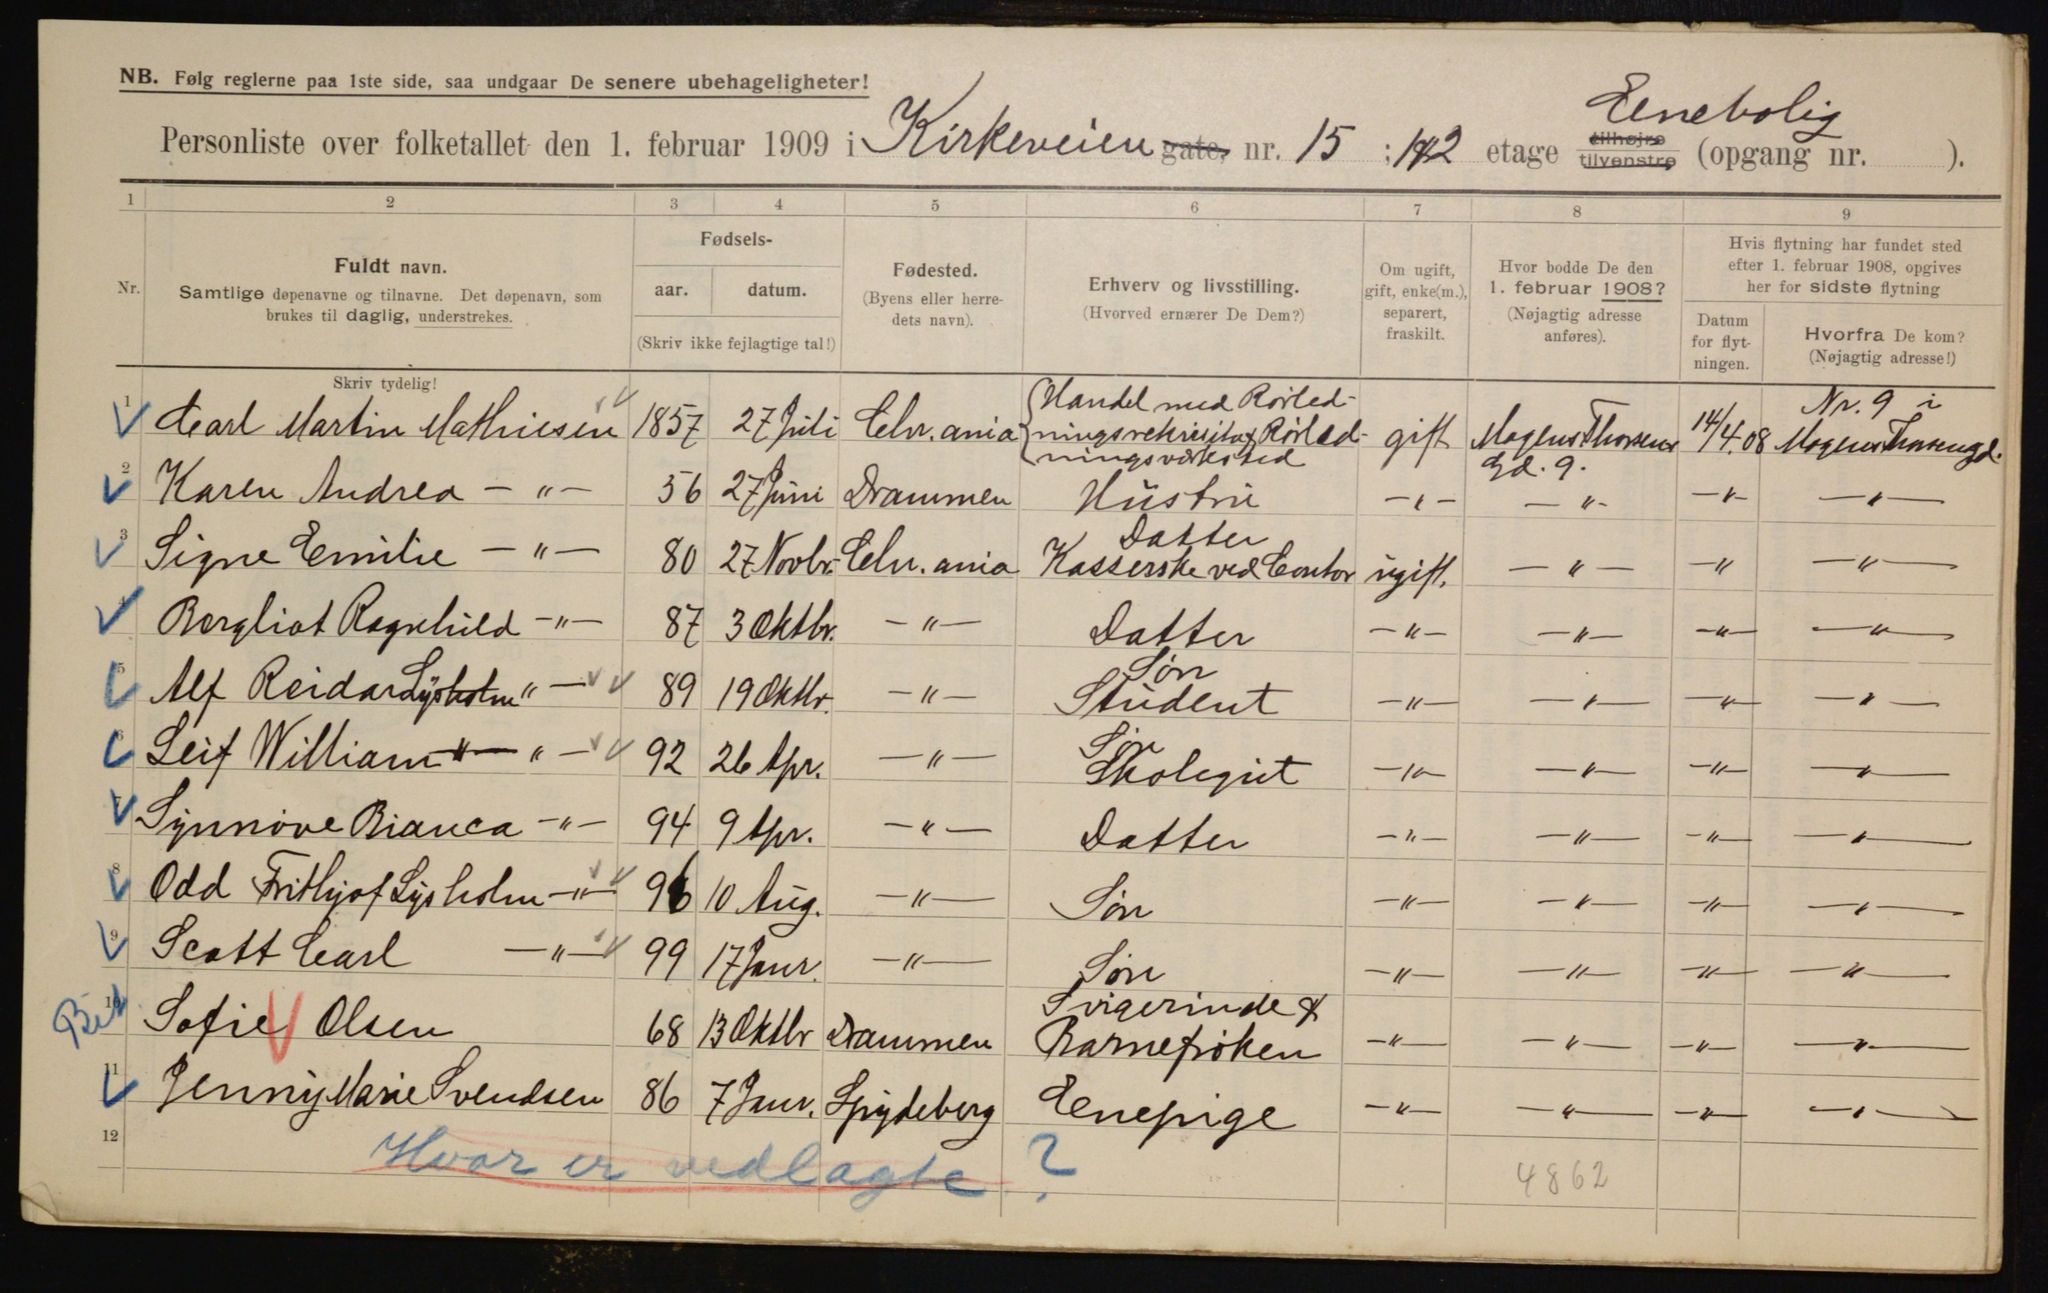 NB. Følg reglerne paa 1ste side, saa undgaar De senere ubehageligheter!
Enebolig
Personliste over folketallet den 1. februar 1909 i Kirkeveien gate, nr. 15 ; 1&2 etage tilhøjre tilvenstre (opgang nr. ).
1 2 3 4 5 6 7 8 9
Nr.
Fuldt navn.
Samtlige døpenavne og tilnavne. Det døpenavn, som
brukes til daglig, understrekes.
Skriv tydelig!
Fødsels-
aar. datum.
(Skriv ikke fejlagtige tal!)
Fødested.
(Byens eller herre-
dets navn).
Erhverv og livsstilling.
(Hvorved ernærer De Dem?)
Om ugift,
gift, enke(m.),
separert,
fraskilt.
Hvor bodde De den
1. februar 1908?
(Nøjagtig adresse
anføres).
Hvis flytning har fundet sted
efter 1. februar 1908, opgives
her for sidste flytning
Datum
for flyt-
ningen.
Hvorfra De kom?
(Nøjagtig adresse!)
1 Carl Martin Mathiesen 1857 27 Juli Chr.ania Handel med Rørled- ningsrekvisita & Rørled- ningsværksted gift Mogens Thorsens Gd. 9. 14/4.08 Nr. 9 i Mogens Thorsengd.
2 Karen Andrea —"— 56 27 Juni Drammen Hustru —"— —"— —"— —"—
3 Signe Emilie —"— 80 27 Novbr. Chr.ania Datter Kasserske ved Contor ugift. —"— —"— —"—
4 Borgliot Ragnhild —"— 87 3 Oktbr. —"— Datter —"— —"— —"— —"—
5 Alf Reidar Lysholm "— 89 19 Oktbr. —"— Søn Student —"— —"— —"— —"—
6 Leif William —"— "— 92 26 Apr. —"— Søn Skolegut —"— —"— —"— —"—
7 Synnøve Bianca —"— 94 9 Apr. —"— Datter —"— —"— —"— —"—
8 Odd Frithjof Lysholm —"— 96 10 Aug. —"— Søn —"— —"— —"— —"—
9 Scott Carl —"— 99 17 Janr. —"— Søn —"— —"— —"— —"—
10 Sofie Olsen 68 13 Oktbr Drammen Svigerinde & Barnefrøken —"— —"— —"— —"—
11 Jenny Marie Svendsen 86 7 Janr. Spydeberg Enepige —"— —"— —"— —"—
12
Hvor er vedlagte ?
4862